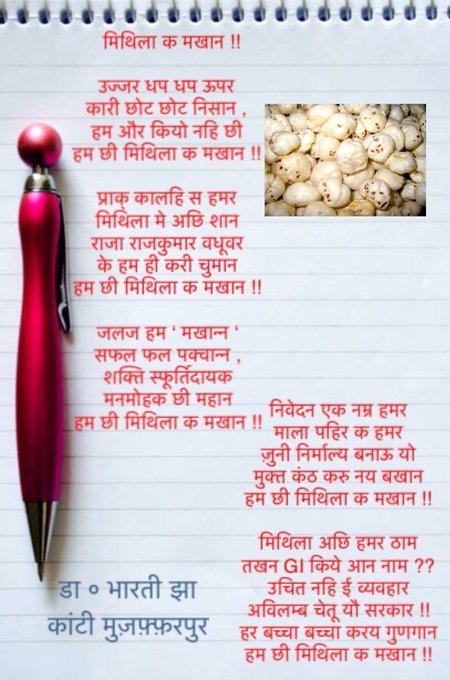 मिथिला क मखान !!
उज्जर धप धप ऊपर
कारी छोट छोट निसान ,
हम और कियो नहि छी
हम छी मिथिला क मखान !!
प्राक् कालहि स हमर
मिथिला मे अछि शान
राजा राजकुमार वधूवर
के हम ही करी चुमान
हम छी मिथिला क मखान !!
जलज हम ‘ मखान्न ‘
सफल फल पक्वान्न ,
शक्ति स्फूर्तिदायक
मनमोहक छी महान
हम छी मिथिला क मखान !!
निवेदन एक नम्र हमर
माला पहिर क हमर
जुनी निर्माल्य बनाऊ यो
मुक्त कंठ करु नय बखान
हम छी मिथिला क मखान !!
मिथिला अछि हमर ठाम
तखन GI किये आन नाम ??
उचित नहि ई व्यवहार
अविलम्ब चेतू यौ सरकार !!
हर बच्चा बच्चा करय गुणगान
हम छी मिथिला क मखान !!
डा ० भारती झा
कांटी मुज़फ़्फ़रपुर